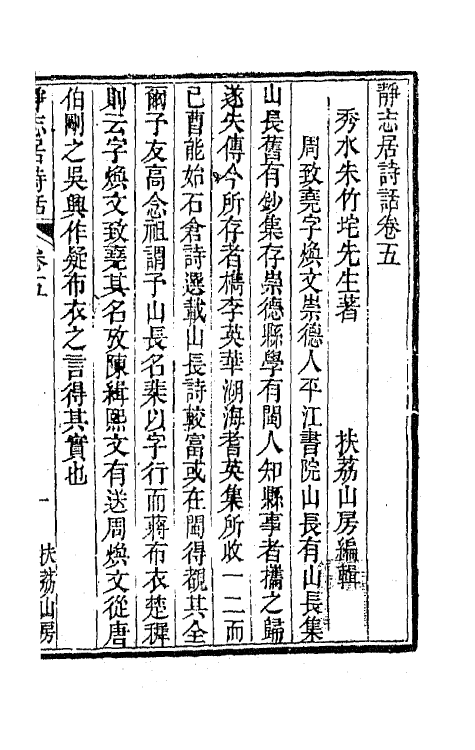 靜志居詩話卷五
秀水朱竹垞先生著　扶荔山房編輯
周致堯字煥文崇德人平江書院山長有山長集
山長舊有鈔集存崇德縣學有閩人知縣事者攜之歸
遂失傳今所存者檇李英華湖海耆英集所收一二而
已曹能始石倉詩選載山長詩較富或在閩得覩其全
爾予友高念祖謂予山長名棐以字行而蔣布衣楚穉
則云字煥文致堯其名攷陳緝熙文有送周煥文從唐
伯剛之吳興作疑布衣之言得其實也
靜志居詩話　卷五　一　扶荔山房